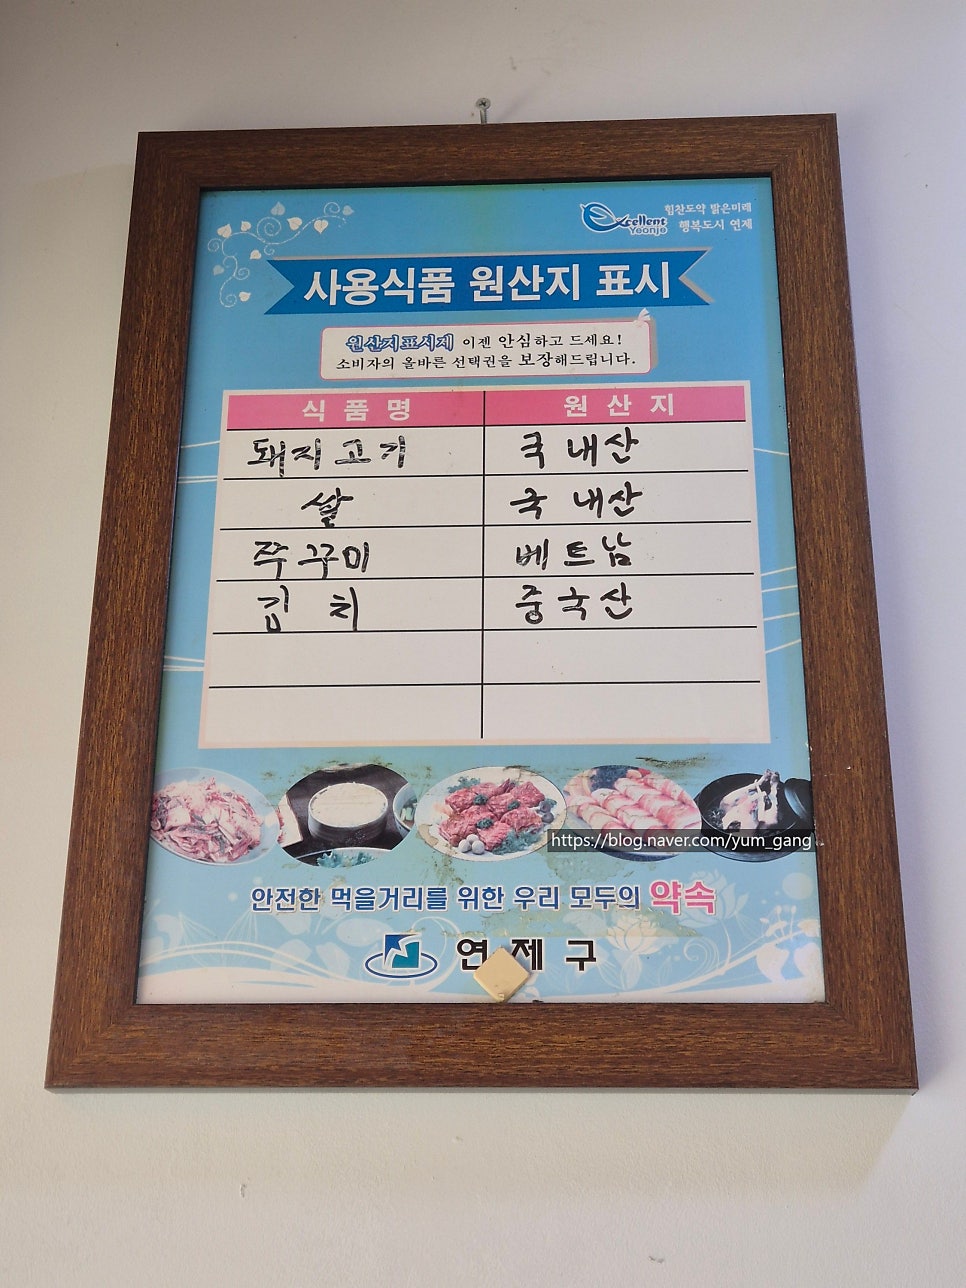 Excellent Yeonje
힘찬도약 밝은미래
행복도시 연제
사용식품 원산지 표시
원산지표시제 이젠 안심하고 드세요!
소비자의 올바른 선택권을 보장해드립니다.
식품명 원산지
돼지고기 국내산
쌀 국내산
쭈꾸미 베트남
김치 중국산
https://blog.naver.com/yum_gang
안전한 먹을거리를 위한 우리 모두의 약속
연제구